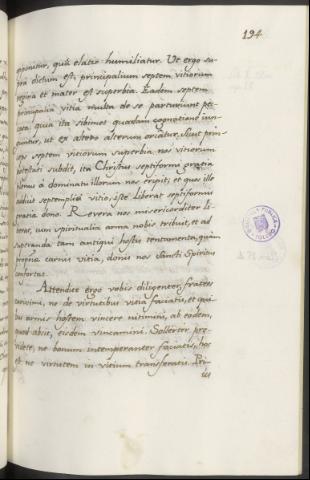 194
opponitur, quia elatio humiliatur. Ut ergo su-
pra dictum est, principalium septem vitiorum
regina et mater est superbia. Eadem septem
principalia vitia multa de se parturiunt
quia ita sibimet quadam cognatione iun-
guntur, ut ex altero alterum oriatur. Sicut prin-
ceps septem vitiorum superbia nos vitiorum
potestati subdit, ita Christus septiformi gratia
plenus á dominatu illorum nos eripit; et quos illo
septemplici vitio, iste liberat septiformi
gratia dono. Revera nos misericorditer li-
berat, cum spiritualia arma nobis tribuit, et ad
superanda tam antiqui hostis tentamenta, quam
propria carnis vitia, donis nos Sancti Spiritus
confortat.
Attendite ergo vobis diligenter, fratres
carissimi, ne de virtutibus vitia faciatis, et qui-
bus armis hostem vincere nitimini, ab eodem,
quod absit, eisdem vincamini. Sollerter pro-
videte, ne bonum intemperanter faciatis, hoc
est ne virtutem in vitium transferatis. Pri-
us